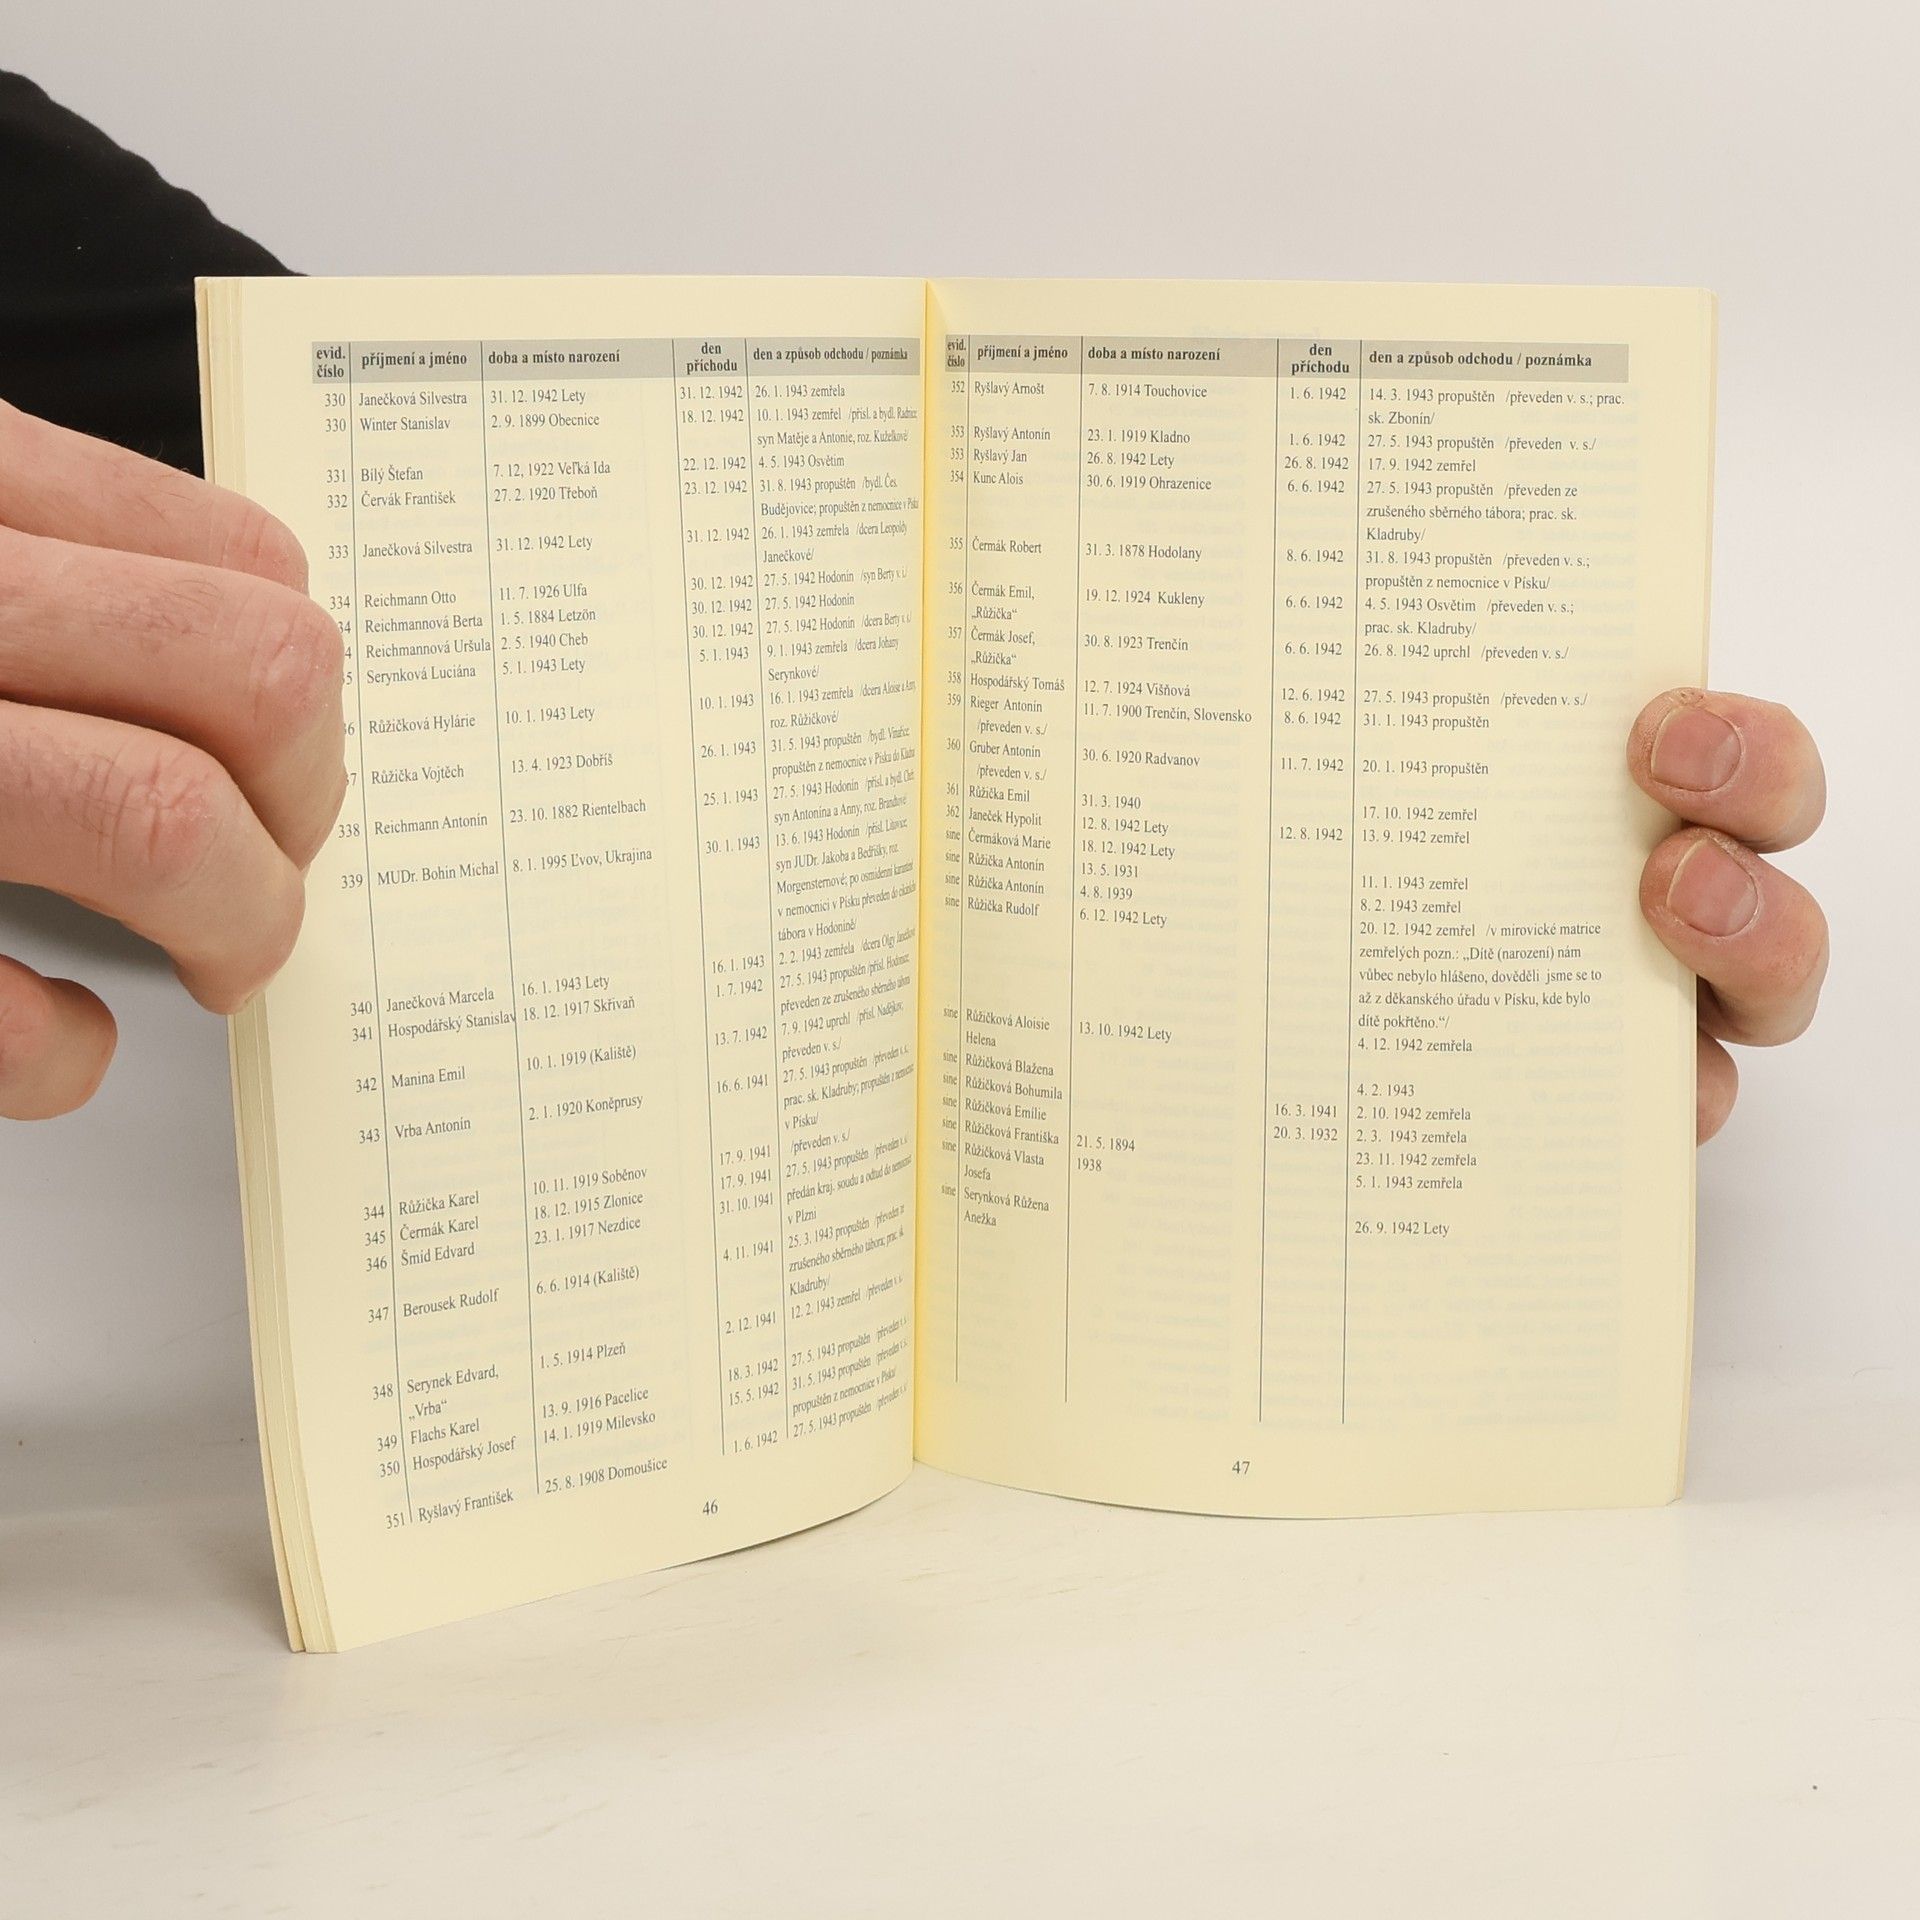 evid. číslo | příjmení a jméno | doba a místo narození | den příchodu | den a způsob odchodu / poznámka
330 Janečková Silvestra 31. 12. 1942 Lety 31. 12. 1942 26. 1. 1943 zemřela
330 Winter Stanislav 2. 9. 1899 Obecnice 18. 12. 1942 10. 1. 1943 zemřel /přísl. a bydl. Radnice;
syn Matěje a Antonie, roz. Kuželkové/
331 Bílý Štefan 7. 12, 1922 Veľká Ida 22. 12. 1942 4. 5. 1943 Osvětim
332 Červák František 27. 2. 1920 Třeboň 23. 12. 1942 31. 8. 1943 propuštěn /bydl. Čes.
Budějovice; propuštěn z nemocnice v Písku
333 Janečková Silvestra 31. 12. 1942 Lety 31. 12. 1942 26. 1. 1943 zemřela /dcera Leopoldy
Janečkové/
334 Reichmann Otto 11. 7. 1926 Ulfa 30. 12. 1942 27. 5. 1942 Hodonín /syn Berty v. i./
34 Reichmannová Berta 1. 5. 1884 Letzön 30. 12. 1942 27. 5. 1942 Hodonín
4 Reichmannová Uršula 2. 5. 1940 Cheb 30. 12. 1942 27. 5. 1942 Hodonín /dcera Berty v. s./
5 Serynková Luciána 5. 1. 1943 Lety 5. 1. 1943 9. 1. 1943 zemřela /dcera Johany
Serynkové/
6 Růžičková Hylárie 10. 1. 1943 Lety 10. 1. 1943 16. 1. 1943 zemřela /dcera Aloise a Anny,
roz. Růžičkové/
7 Růžička Vojtěch 13. 4. 1923 Dobříš 26. 1. 1943 31. 5. 1943 propuštěn /bydl. Vinařice;
propuštěn z nemocnice v Písku do Kladna
338 Reichmann Antonín 23. 10. 1882 Rientelbach 25. 1. 1943 27. 5. 1943 Hodonín /přísl. a bydl. Cheb;
syn Antonína a Anny, roz. Brandtové/
339 MUDr. Bohin Michal 8. 1. 1995 Ľvov, Ukrajina 30. 1. 1943 13. 6. 1943 Hodonín /přísl. Litovice;
syn JUDr. Jakoba a Bedřišky, roz.
Morgensternové; po osmidenní karanténě
v nemocnici v Písku převeden do cikánského
tábora v Hodoníně/
340 Janečková Marcela 16. 1. 1943 Lety 16. 1. 1943 2. 2. 1943 zemřela /dcera Olgy Janečkové
341 Hospodářský Stanislav 18. 12. 1917 Skřivaň 1. 7. 1942 27. 5. 1943 propuštěn /přísl. Hodonice;
převeden ze zrušeného sběrného tábora
342 Manina Emil 10. 1. 1919 (Kaliště) 13. 7. 1942 7. 9. 1942 uprchl /přísl. Nadějkov,
převeden v. s./
343 Vrba Antonín 2. 1. 1920 Koněprusy 16. 6. 1941 27. 5. 1943 propuštěn /převeden v. s.
prac. sk. Kladruby; propuštěn z nemocnice
v Písku/
344 Růžička Karel 10. 11. 1919 Soběnov 17. 9. 1941 /převeden v. s./
345 Čermák Karel 18. 12. 1915 Zlonice 17. 9. 1941 27. 5. 1943 propuštěn /převeden v. s./
346 Šmíd Edvard 23. 1. 1917 Nezdice 31. 10. 1941 předán kraj. soudu a odtud do nemocnice
v Plzni
347 Berousek Rudolf 6. 6. 1914 (Kaliště) 4. 11. 1941 25. 3. 1943 propuštěn /převeden ze
zrušeného sběrného tábora; prac. sk.
Kladruby/
348 Serynek Edvard, 1. 5. 1914 Plzeň 2. 12. 1941 12. 2. 1943 zemřel /převeden v. s.
„Vrba“
349 Flachs Karel 13. 9. 1916 Pacelice 18. 3. 1942 27. 5. 1943 propuštěn /převeden v. s.
350 Hospodářský Josef 14. 1. 1919 Milevsko 15. 5. 1942 31. 5. 1943 propuštěn /převeden v. s.
propuštěn z nemocnice v Písku/
351 Ryšlavý František 25. 8. 1908 Domoušice 1. 6. 1942 27. 5. 1943 propuštěn /převeden v. s.
46
evid. číslo | příjmení a jméno | doba a místo narození | den příchodu | den a způsob odchodu / poznámka
352 Ryšlavý Arnošt 7. 8. 1914 Touchovice 1. 6. 1942 14. 3. 1943 propuštěn /převeden v. s.; prac.
sk. Zbonín/
353 Ryšlavý Antonín 23. 1. 1919 Kladno 1. 6. 1942 27. 5. 1943 propuštěn /převeden v. s./
353 Ryšlavý Jan 26. 8. 1942 Lety 26. 8. 1942 17. 9. 1942 zemřel
354 Kunc Alois 30. 6. 1919 Ohrazenice 6. 6. 1942 27. 5. 1943 propuštěn /převeden ze
zrušeného sběrného tábora; prac. sk.
Kladruby/
355 Čermák Robert 31. 3. 1878 Hodolany 8. 6. 1942 31. 8. 1943 propuštěn /převeden v. s.;
propuštěn z nemocnice v Písku/
356 Čermák Emil, 19. 12. 1924 Kukleny 6. 6. 1942 4. 5. 1943 Osvětim /převeden v. s.;
„Růžička“ prac. sk. Kladruby/
357 Čermák Josef, 30. 8. 1923 Trenčín 6. 6. 1942 26. 8. 1942 uprchl /převeden v. s./
„Růžička“
358 Hospodářský Tomáš 12. 7. 1924 Višňová 12. 6. 1942 27. 5. 1943 propuštěn /převeden v. s./
359 Rieger Antonín 11. 7. 1900 Trenčín, Slovensko 8. 6. 1942 31. 1. 1943 propuštěn
/převeden v. s./
360 Gruber Antonín 30. 6. 1920 Radvanov 11. 7. 1942 20. 1. 1943 propuštěn
/převeden v. s./
361 Růžička Emil 31. 3. 1940 17. 10. 1942 zemřel
362 Janeček Hypolit 12. 8. 1942 Lety 12. 8. 1942 13. 9. 1942 zemřel
sine Čermáková Marie 18. 12. 1942 Lety
sine Růžička Antonín 13. 5. 1931 11. 1. 1943 zemřel
sine Růžička Antonín 4. 8. 1939 8. 2. 1943 zemřel
sine Růžička Rudolf 6. 12. 1942 Lety 20. 12. 1942 zemřel /v mirovické matrice
zemřelých pozn.: „Dítě (narození) nám
vůbec nebylo hlášeno, dověděli jsme se to
až z děkanského úřadu v Písku, kde bylo
dítě pokřtěno.“/
sine Růžičková Aloisie 13. 10. 1942 Lety 4. 12. 1942 zemřela
Helena
sine Růžičková Blažena 4. 2. 1943
sine Růžičková Bohumila 16. 3. 1941 2. 10. 1942 zemřela
sine Růžičková Emílie 20. 3. 1932 2. 3. 1943 zemřela
sine Růžičková Františka 21. 5. 1894 23. 11. 1942 zemřela
sine Růžičková Vlasta 1938 5. 1. 1943 zemřela
Josefa
sine Serynková Růžena 26. 9. 1942 Lety
Anežka
47